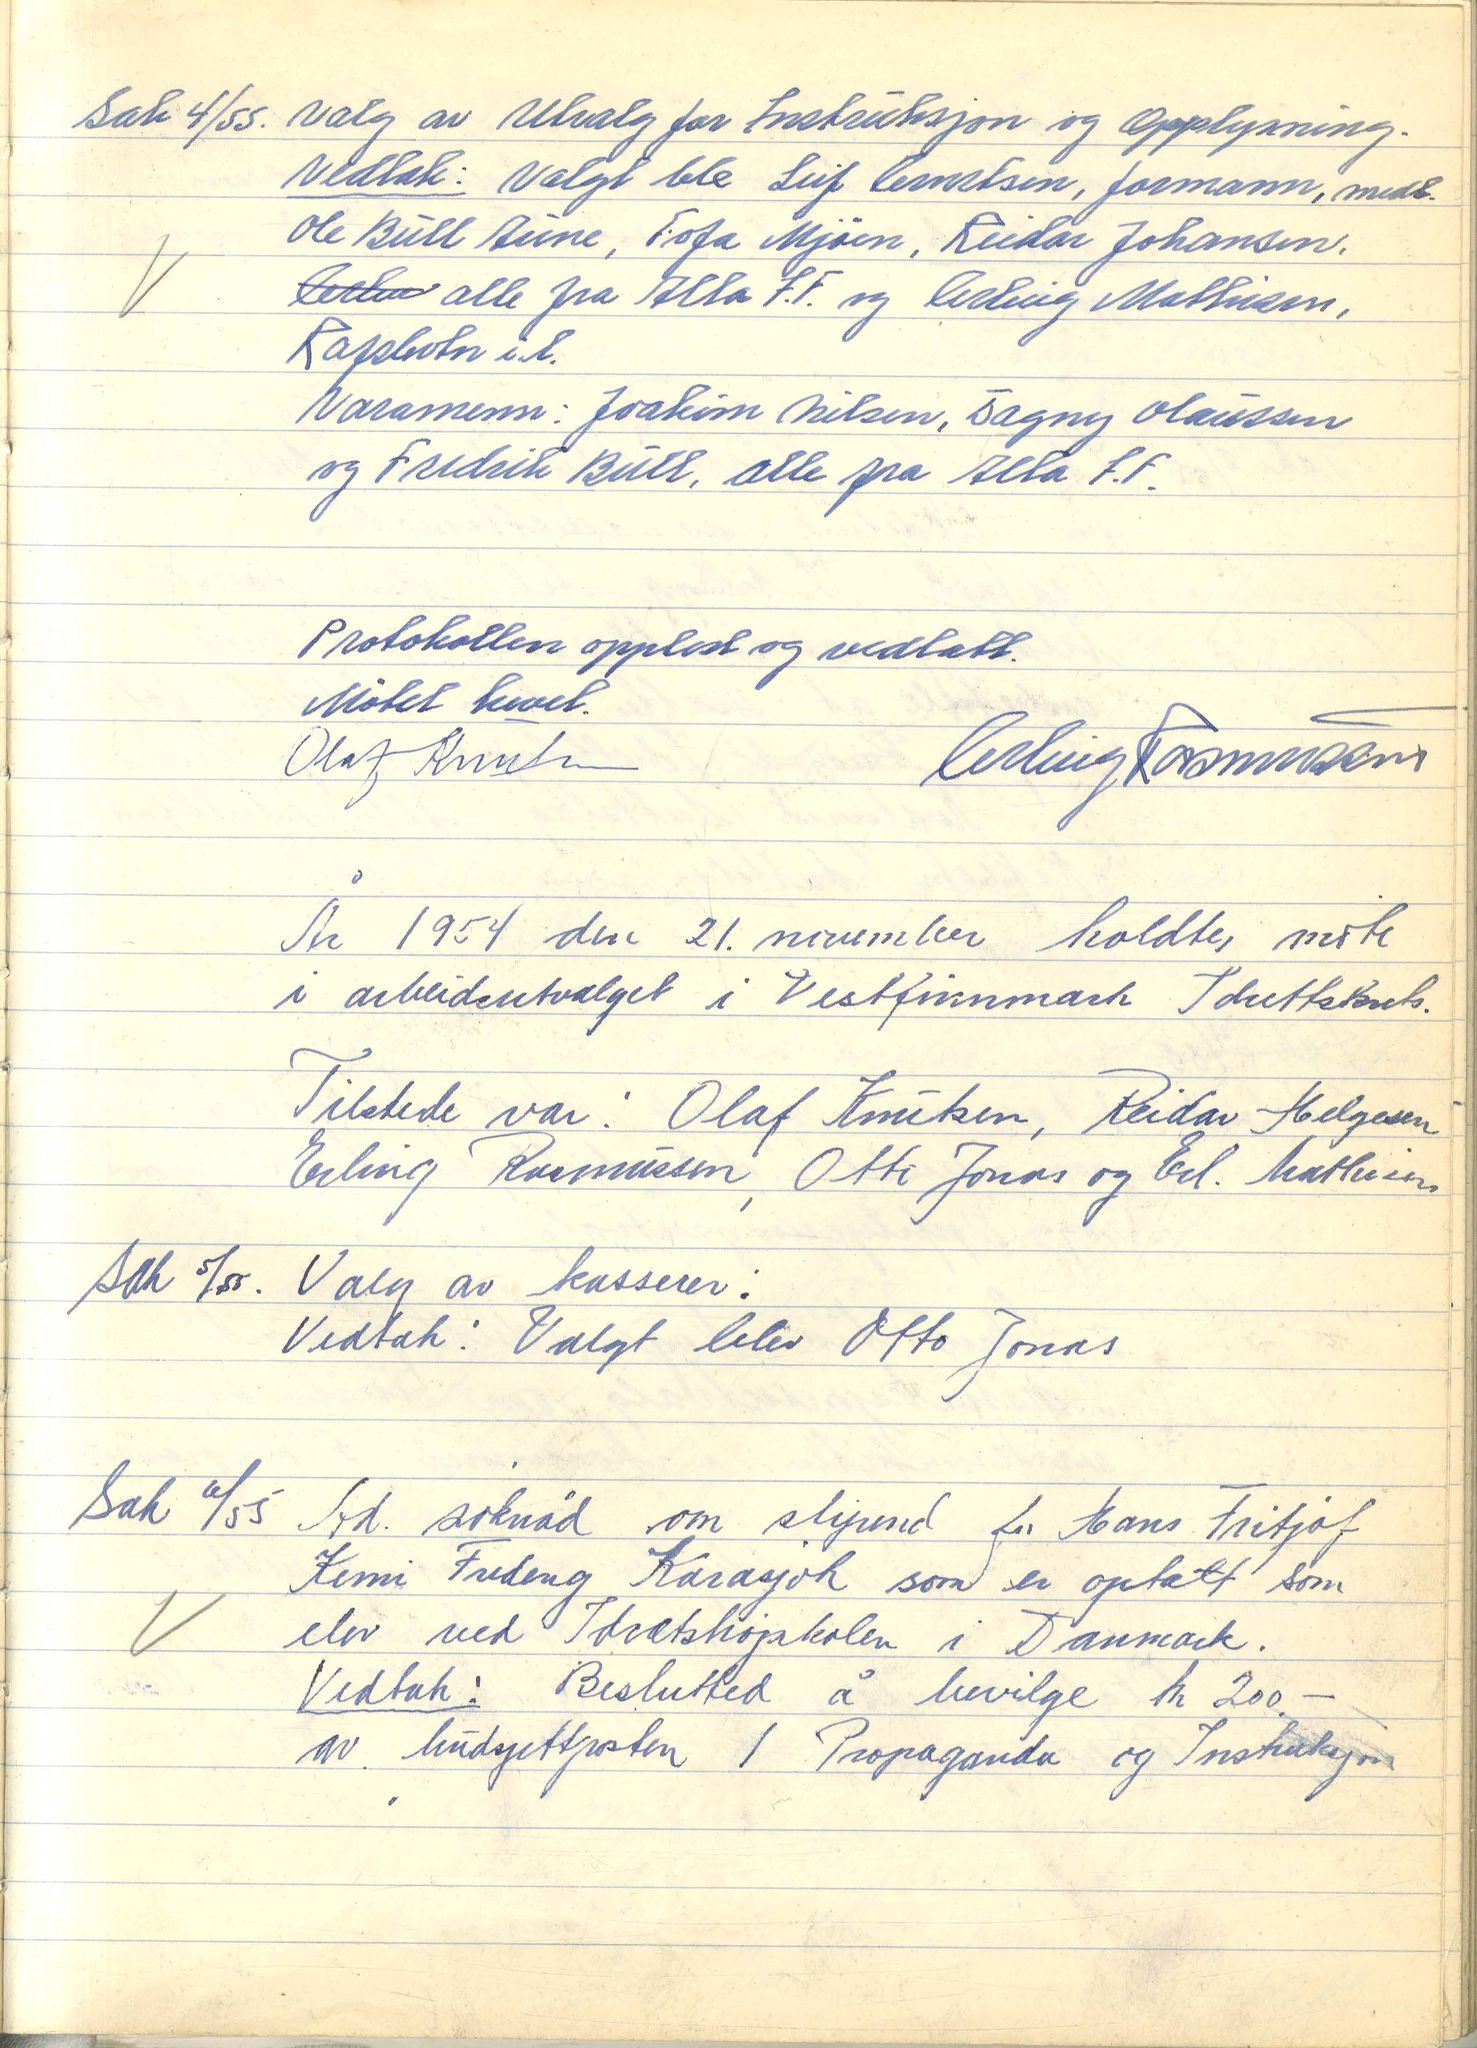 Sak 4/55. Valg av Utvalg for Instruksjon og Opplysning.
Vedtak: Valgt ble Leif Berntsen, formann, medl.
Ole Bull Aune, Tofa Mjöen, Reidar Johansen,
alle fra Alta I.F. og Erling Mathisen,
Rafsbotn i.l.
Varamenn: Joakim Nilsen, Dagny Olaussen
og Fredrik Bull, alle fra Alta I.F.
Protokollen opplest og vedtatt.
Møtet hevet.
Olaf Knutsen Erling Rasmussen
År 1954 den 21. november holdtes møte
i arbeidsutvalget i Vestfinnmark Idrettskrets.
Tilstede var: Olaf Knutsen, Reidar Helgesen
Erling Rasmussen, Otto Jonas og Erl. Mathisen
Sak 5/55. Valg av kasserer:
Vedtak: Valgt blev Otto Jonas
Sak 6/55 Ad. søknad om stipend for Hans Fritjof
Kemi Fredeng Karasjok som er optatt som
elev ved Idrætshøjskolen i Danmark.
Vedtak: Beslutted å bevilge kr 200.-
av budsjettposten / Propaganda og Instruksjon